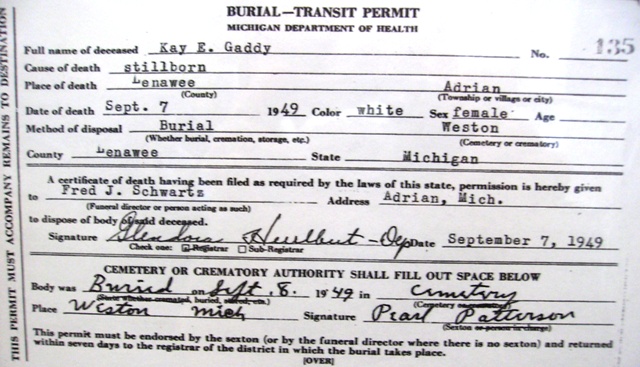 BURIAL—TRANSIT PERMIT
MICHIGAN DEPARTMENT OF HEALTH
Full name of deceased Kay E. Gaddy No. 135
Cause of death stillborn
Place of death Lenawee Adrian
(County) (Township or village or city)
Date of death Sept. 7 1949 Color white Sex female Age
Method of disposal Burial Weston
(Whether burial, cremation, storage, etc.) (Cemetery or crematory)
County Lenawee State Michigan
A certificate of death having been filed as required by the laws of this state, permission is hereby given
to Fred J. Schwartz Address Adrian, Mich.
(Funeral director or person acting as such)
to dispose of body of said deceased.
Signature Glendora Hurlbut-Dep Date September 7, 1949
Check one: Registrar Sub-Registrar
CEMETERY OR CREMATORY AUTHORITY SHALL FILL OUT SPACE BELOW
Body was Buried on Sept. 8. 1949 in Cemetery
(State whether cremated, buried, stored, etc.) (Cemetery or crematory)
Place Weston Mich Signature Pearl Patterson
(Sexton or person in charge)
This permit must be endorsed by the sexton (or by the funeral director where there is no sexton) and returned
within seven days to the registrar of the district in which the burial takes place.
[OVER]
THIS PERMIT MUST ACCOMPANY REMAINS TO DESTINATION